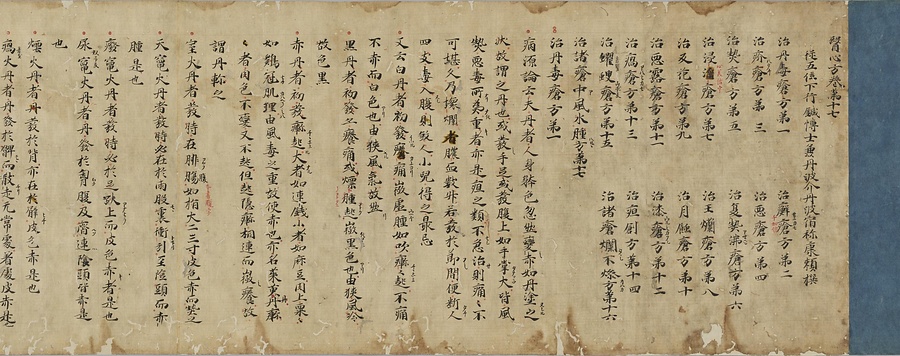 醫心方卷第十七
從五位下行鍼博士兼丹波介丹波宿祢康賴撰
治丹毒瘡方第一 治癬瘡方第二
治疥瘡方第三 治惡瘡方第四
治熱瘡方第五 治夏熱沸瘡方第六
治浸淫瘡方第七 治王爛瘡方第八
治反花瘡方第九 治月蝕瘡方第十
治惡露瘡方第十一 治漆瘡方第十二
治瘑瘡方第十三 治疽創方第十四
治蠼螋瘡方第十五 治諸瘡爛不燥方第十六
治諸瘡中風水腫方第十七
治丹毒瘡方第一
病源論云夫丹者人身躰色忽然變赤如丹塗之
狀故謂之丹也或發手足或發腹上如手掌大皆風
熱惡毒所為重者亦是疽之類不急治則痛之不
可堪久乃壞爛者膿血數升若發於節間便斷人
四支毒入腹則煞人小兒得之最忌
又云白丹者初發癢痛微虛腫如吹癮起不痛
不赤而白色也由挾風氣故然
黑丹者初發亦癢痛或熛腫起微黑色也由挾風冷
故色黑
赤丹者初發癮起大者如連錢小者如麻豆肉上粟
如鷄冠肌理由風毒之重故使赤也亦名茱萸丹
者肉色不變又不熱但起隱癮相連而微癢故
謂丹軫之
室火丹者發時在腓腸如指大二三寸皮色赤而熱之
天竈火丹者發時必在於兩股裏衝引至陰頭而赤
腫是也
廢竈火丹者發時必於足趺上而皮色赤者是也
尿竈火丹者丹發於胷腹及齊連陰頭皆赤是
也
熛火丹者丹發於背亦在於臂皮色赤是也
瘑火丹者丹發於髀而散走无常處者處皮赤是